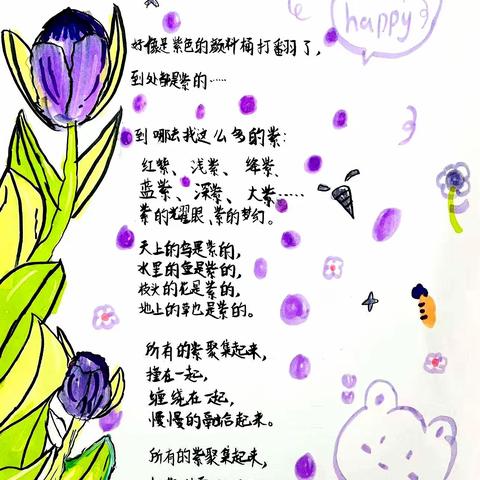 happy
好像是紫色的颜料桶打翻了，
到处都是紫的……
到哪去找这么多的紫：
红紫、浅紫、绛紫、
蓝紫、深紫、大紫……
紫的光耀眼、紫的梦幻。
天上的鸟是紫的，
水里的鱼是紫的，
枝头的花是紫的，
地上的草也是紫的。
所有的紫聚集起来，
撞在一起，
缠绕在一起，
慢慢的融合起来。
所有的紫聚集起来，